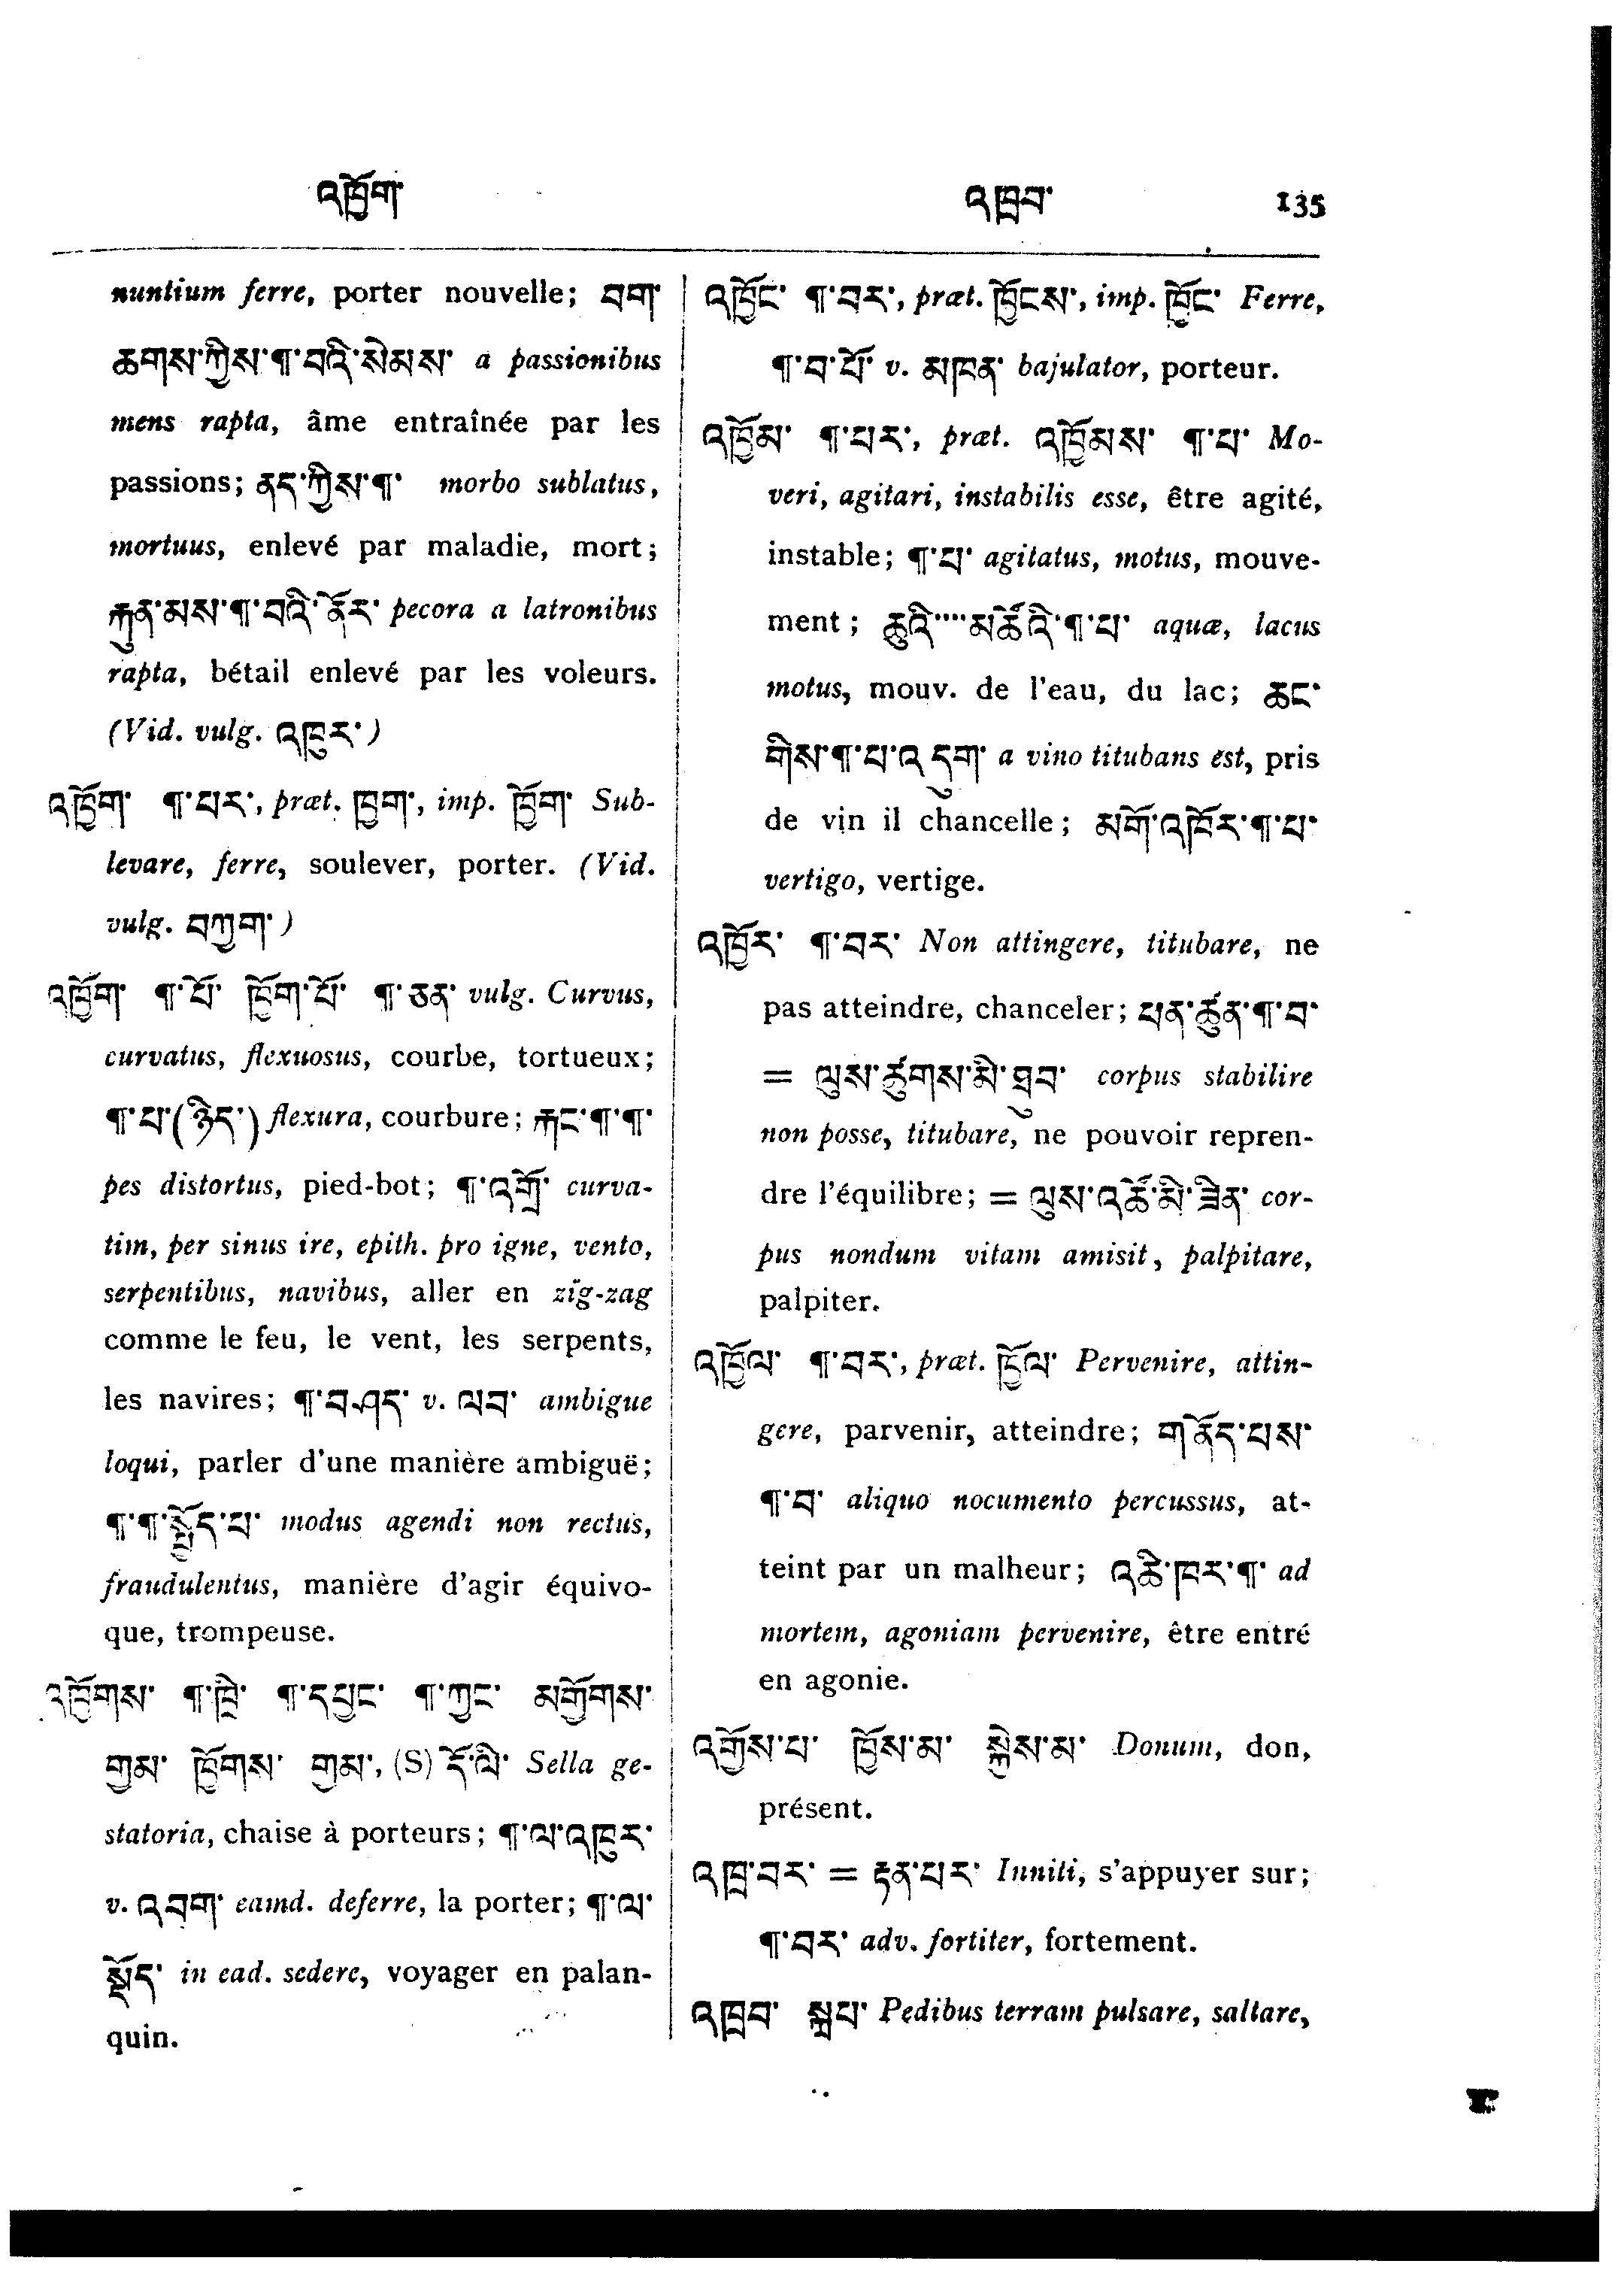 འཁྱོག་ འཁྲབ་ 135
nuntium ferre, porter nouvelle; བག་
ཆགས་ཀྱིས་¶་བའི་སེམས་ a passionibus
mens rapta, âme entraînée par les
passions; ནད་ཀྱིས་¶་ morbo sublatus,
mortuus, enlevé par maladie, mort;
རྐུན་མས་¶་བའི་ནོར་ pecora a latronibus
rapta, bétail enlevé par les voleurs.
(Vid. vulg. འཁུར་)
འཁྱོག་ ¶་པར་, præt. ཁྱག་, imp. ཁྱོག་ Sub-
levare, ferre, soulever, porter. (Vid.
vulg. བཀྱག་)
འཁྱོག་ ¶་པོ་ ཁྱོག་པོ་ ¶་ཅན་ vulg. Curvus,
curvatus, flexuosus, courbe, tortueux;
¶་པ་(ཉིད་) flexura, courbure; རྐང་¶་¶་
pes distortus, pied-bot; ¶་འགྲོ་ curva-
tim, per sinus ire, epith. pro igne, vento,
serpentibus, navibus, aller en zig-zag
comme le feu, le vent, les serpents,
les navires; ¶་བཤད་ v. ལབ་ ambigue
loqui, parler d'une manière ambiguë;
¶་¶་སྤྱོད་པ་ modus agendi non rectus,
fraudulentus, manière d'agir équivo-
que, trompeuse.
འཁྱོགས་ ¶་ཁྲི་ ¶་དཔྱང་ ¶་ཀྱང་ མགྱོགས་
གྱམ་ ཁྱོགས་ གྱམ་, (S) དོ་ལི་ Sella ge-
statoria, chaise à porteurs; ¶་ལ་འཁུར་
v. འབག་ eamd. deferre, la porter; ¶་ལ་
སྡོད་ in ead. sedere, voyager en palan-
quin.
འཁྱོང་ ¶་བར་, præt. ཁྱོངས་, imp. ཁྱོང་ Ferre,
¶་བ་པོ་ v. མཁན་ bajulator, porteur.
འཁྱོམ་ ¶་པར་, præt. འཁྱོམས་ ¶་པ་ Mo-
veri, agitari, instabilis esse, être agité,
instable; ¶་པ་ agitatus, motus, mouve-
ment; ཆུའི་་་་་མཚོའི་¶་པ་ aquæ, lacus
motus, mouv. de l'eau, du lac; ཆང་
གིས་¶་པ་འདུག་ a vino titubans est, pris
de vin il chancelle; མགོ་འཁོར་¶་པ་
vertigo, vertige.
འཁྱོར་ ¶་བར་ Non attingere, titubare, ne
pas atteindre, chanceler; ཕན་ཚུན་¶་བ་
= ལུས་ཚུགས་མི་ཐུབ་ corpus stabilire
non posse, titubare, ne pouvoir repren-
dre l'équilibre; = ལུས་འཚོ་མི་ཟིན་ cor-
pus nondum vitam amisit, palpitare,
palpiter.
འཁྱོལ་ ¶་བར་, præt. ཁྱོལ་ Pervenire, attin-
gere, parvenir, atteindre; གནོད་པས་
¶་བ་ aliquo nocumento percussus, at-
teint par un malheur; འཆི་ཁར་¶་ ad
mortem, agoniam pervenire, être entré
en agonie.
འགྱོས་པ་ ཁྱོས་མ་ སྐྱེས་མ་ Donum, don,
présent.
འཁྲ་བར་ = རྟེན་པར་ Inniti, s'appuyer sur;
¶་བར་ adv. fortiter, fortement.
འཁྲབ་ སྐྲབ་ Pedibus terram pulsare, saltare,